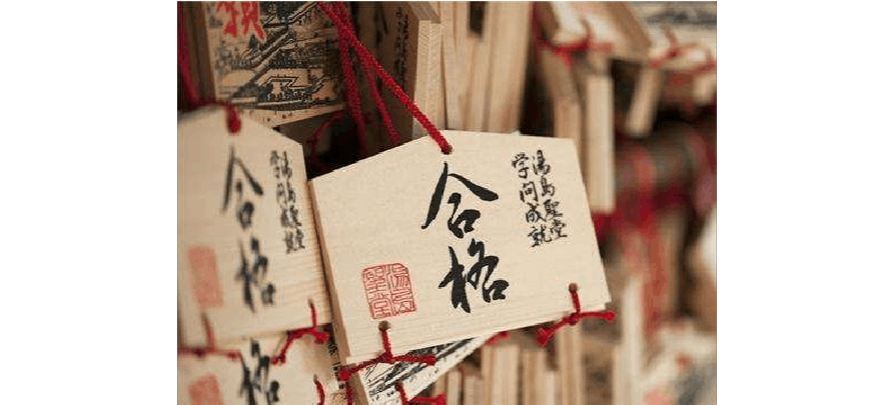 湯島聖堂
学問成就
合格
湯島聖堂
湯島聖堂
学問成就
合格
合格
願